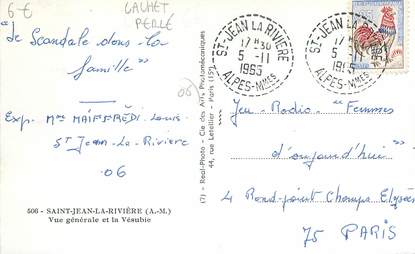 6 €
CACHET
PERLÉ
"Le Scandale dans la
famille"
Exp. Mme MAIFFRÉDI Louis
St Jean-La-Rivière
06
506 - SAINT-JEAN-LA-RIVIÈRE (A.-M.)
Vue générale et la Vésubie
(06)
(7) - Real-Photo - Cie des Arts Photomécaniques
44, rue Letellier - Paris (15e)
ST-JEAN LA RIVIÈRE
17 H 30
5 -11
1965
ALPES-MMES
ST-JEAN LA RIVIÈRE
17 H 30
5 -11
1965
ALPES-MMES
Jeu-Radio "Femmes
d'aujourd'hui"
4 Rond-point Champs Elysées
75 PARIS